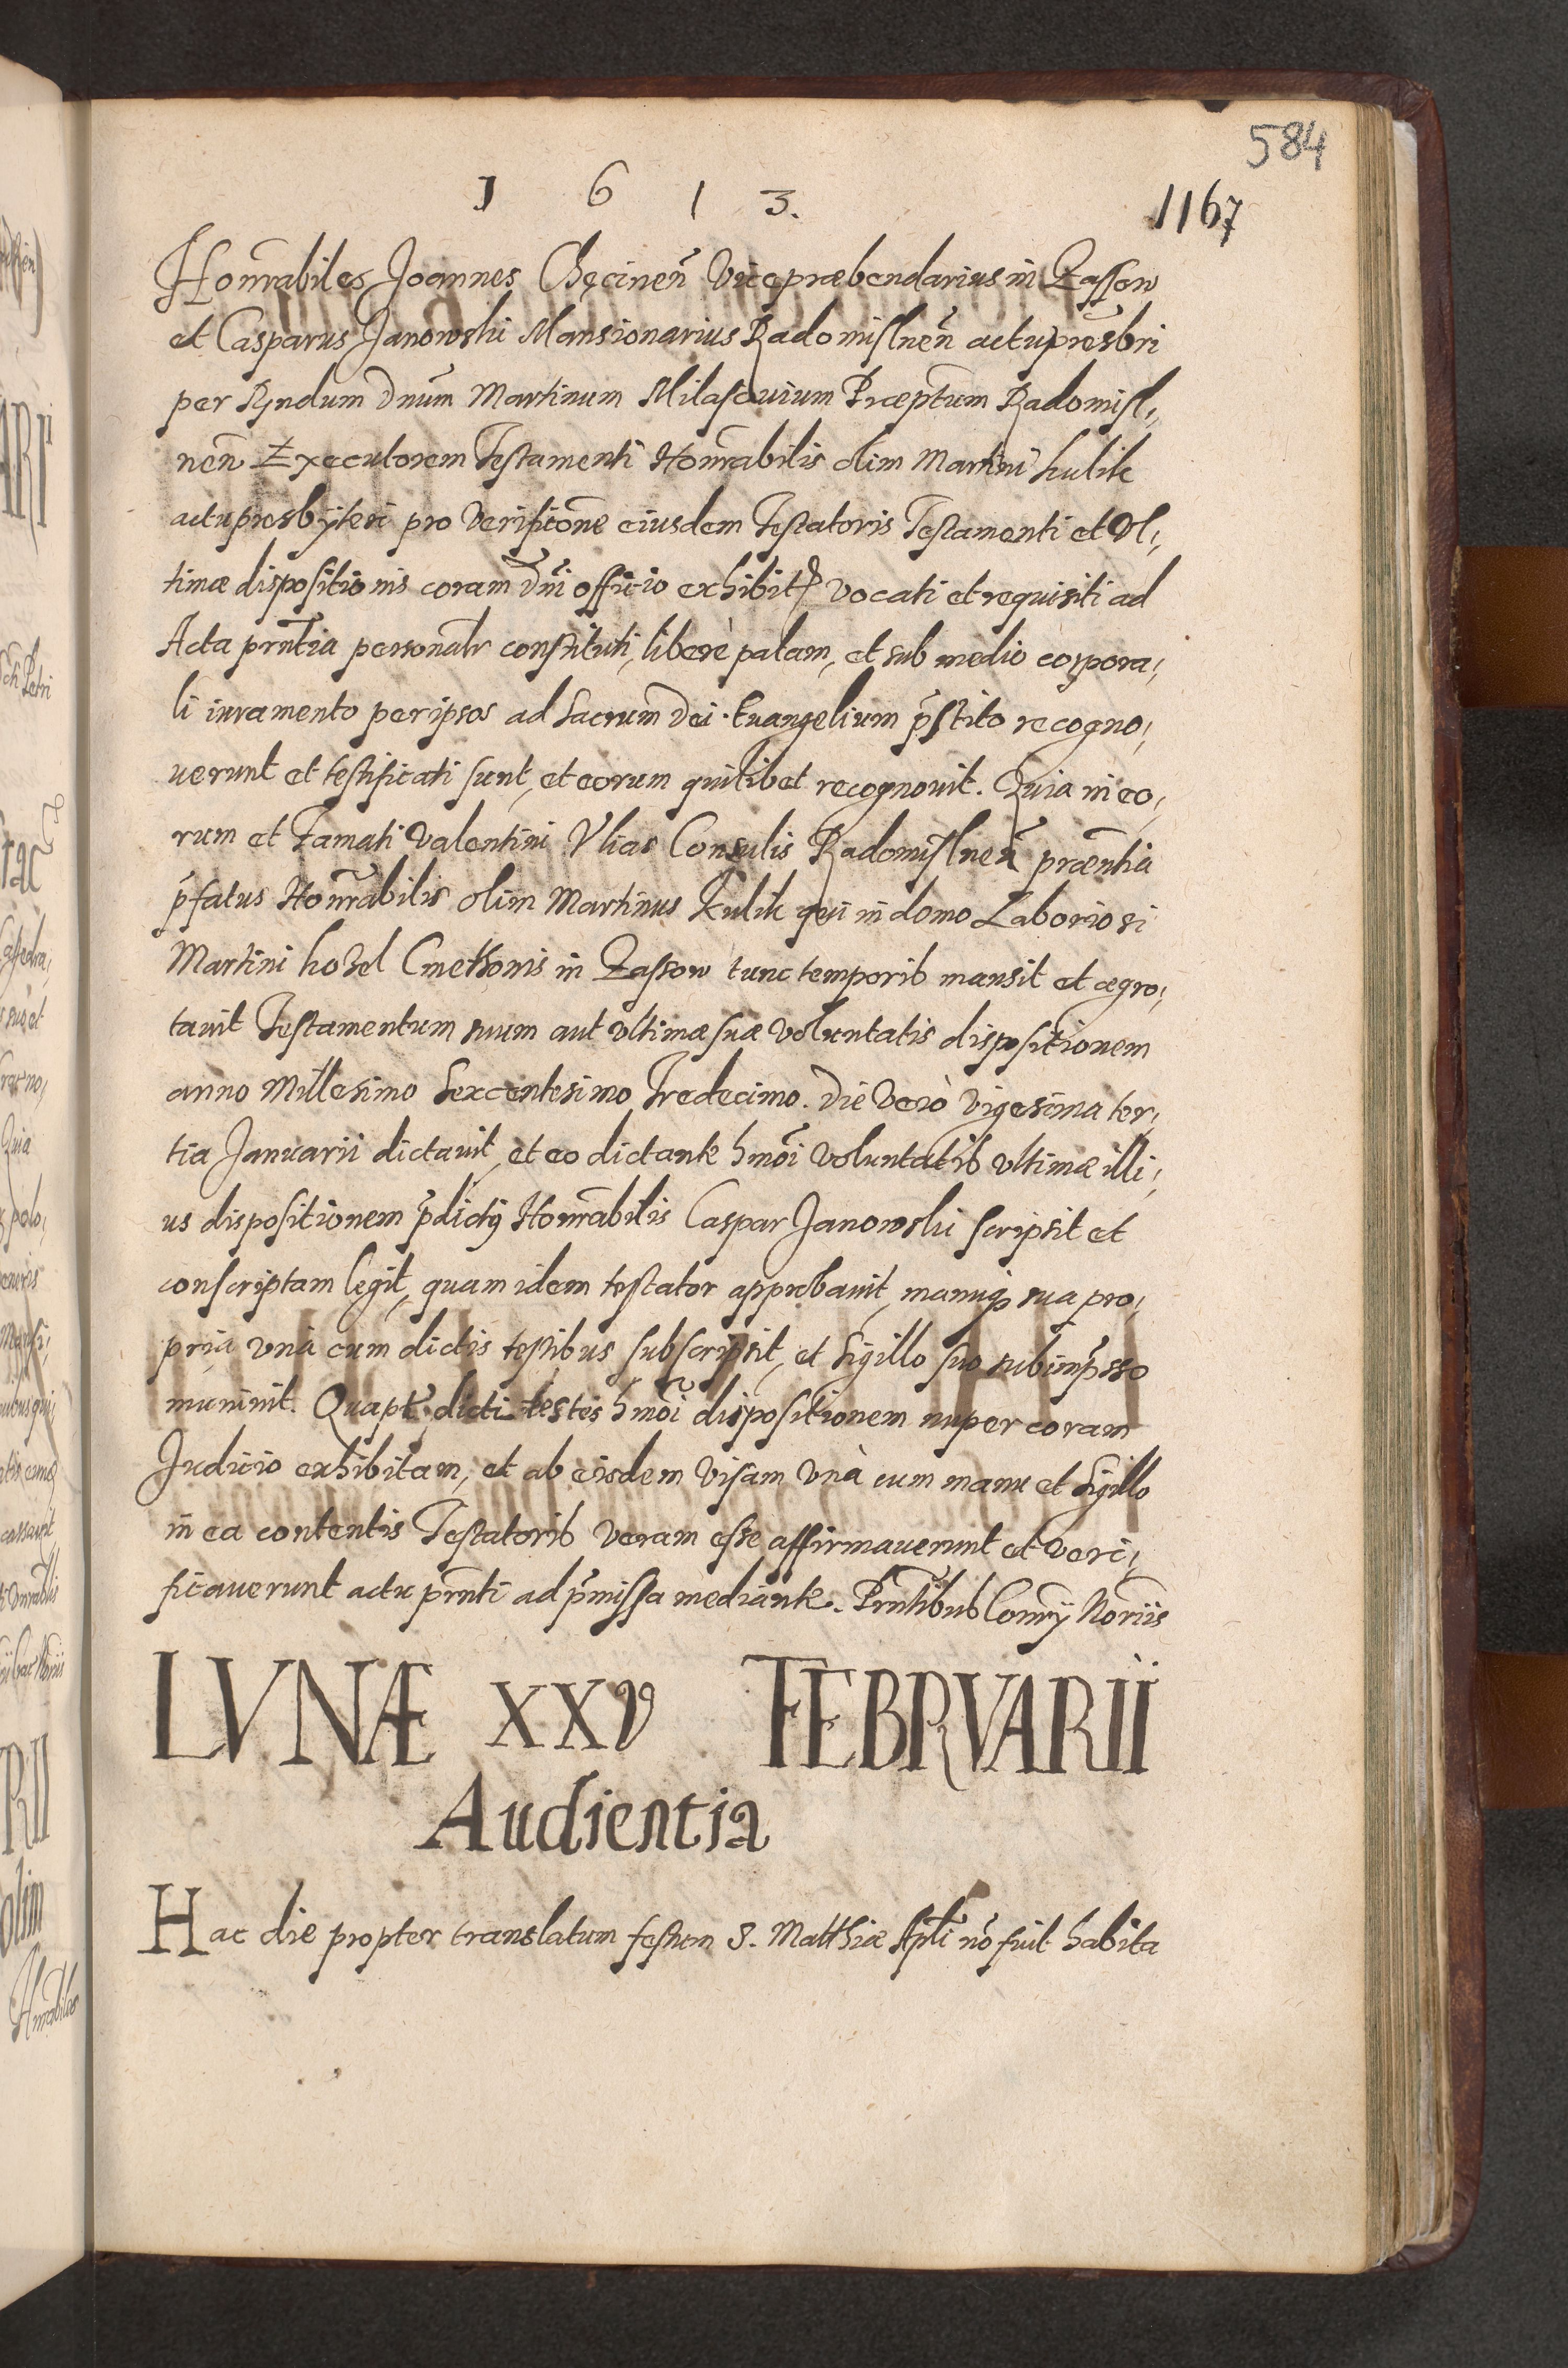 584
1 6 1 3.
1167
Honrãbiles Joannes Chęcineñ Vicepræbendarius in Zassow
et Casparus Janowski Mansionarius Radomislneñ actupresbri
per Rndum Dnum Martinum Milascouium Præptum Radomisl,
neñ Executorem Testamenti Honrãbilis olim Martini kulik
actupresbÿteri pro Verificõne eiusdem Testatoris Testamenti et Vl,
timæ dispositionis coram Dni officio exhibit vocati et requisiti ad
Acta prñtia personalr constituti, liberè palam, et sub medio corpora,
li iuramento per ipsos ad Sacrum Dei Euangelium p̃stito recogno,
uerunt et testificati sunt, et eorum quilibet recognouit. Quia in eo,
rum et Famati Valentini Vlias Consulis Radomislneñ præntia
p̃fatus Honrãbilis olim Martinus Kulik qui in domo Laboriosi
Martini kozel Cmethonis in Zassow tunc temporis mansit et ægro,
tauit Testamentum suum aut vltimæ suæ voluntatis dispositionem
anno Millesimo Sexcentesimo Tredecimo. Die Verò Vigesima ter,
tia Januarii dictauit, et eo dictante hmõi voluntatis vltimæ illi,
us dispositionem p̃dictus Honrãbilis Caspar Janowski scripsit et
conscriptam legit, quam idem testator approbauit, manuq; sua pro,
pria vnà cum dictis testibus subscripsit, et Sigillo suo subimp̃sso
muniuit. Quapt. dicti testes hmõi dispositionem nuper coram
Judicio exhibitam, et ab eisdem visam vnà cum manu et Sigillo
in ea contentis Testatoris veram esse affirmauerunt et Veri,
ficauerunt actu prñti ad p̃missa mediante. Prñtibus Connÿ Noriis
LVNÆ XXV FEBRVARII
Audientia
Hac die propter translatum festum S. Matthiæ Apli nõ fuit habita